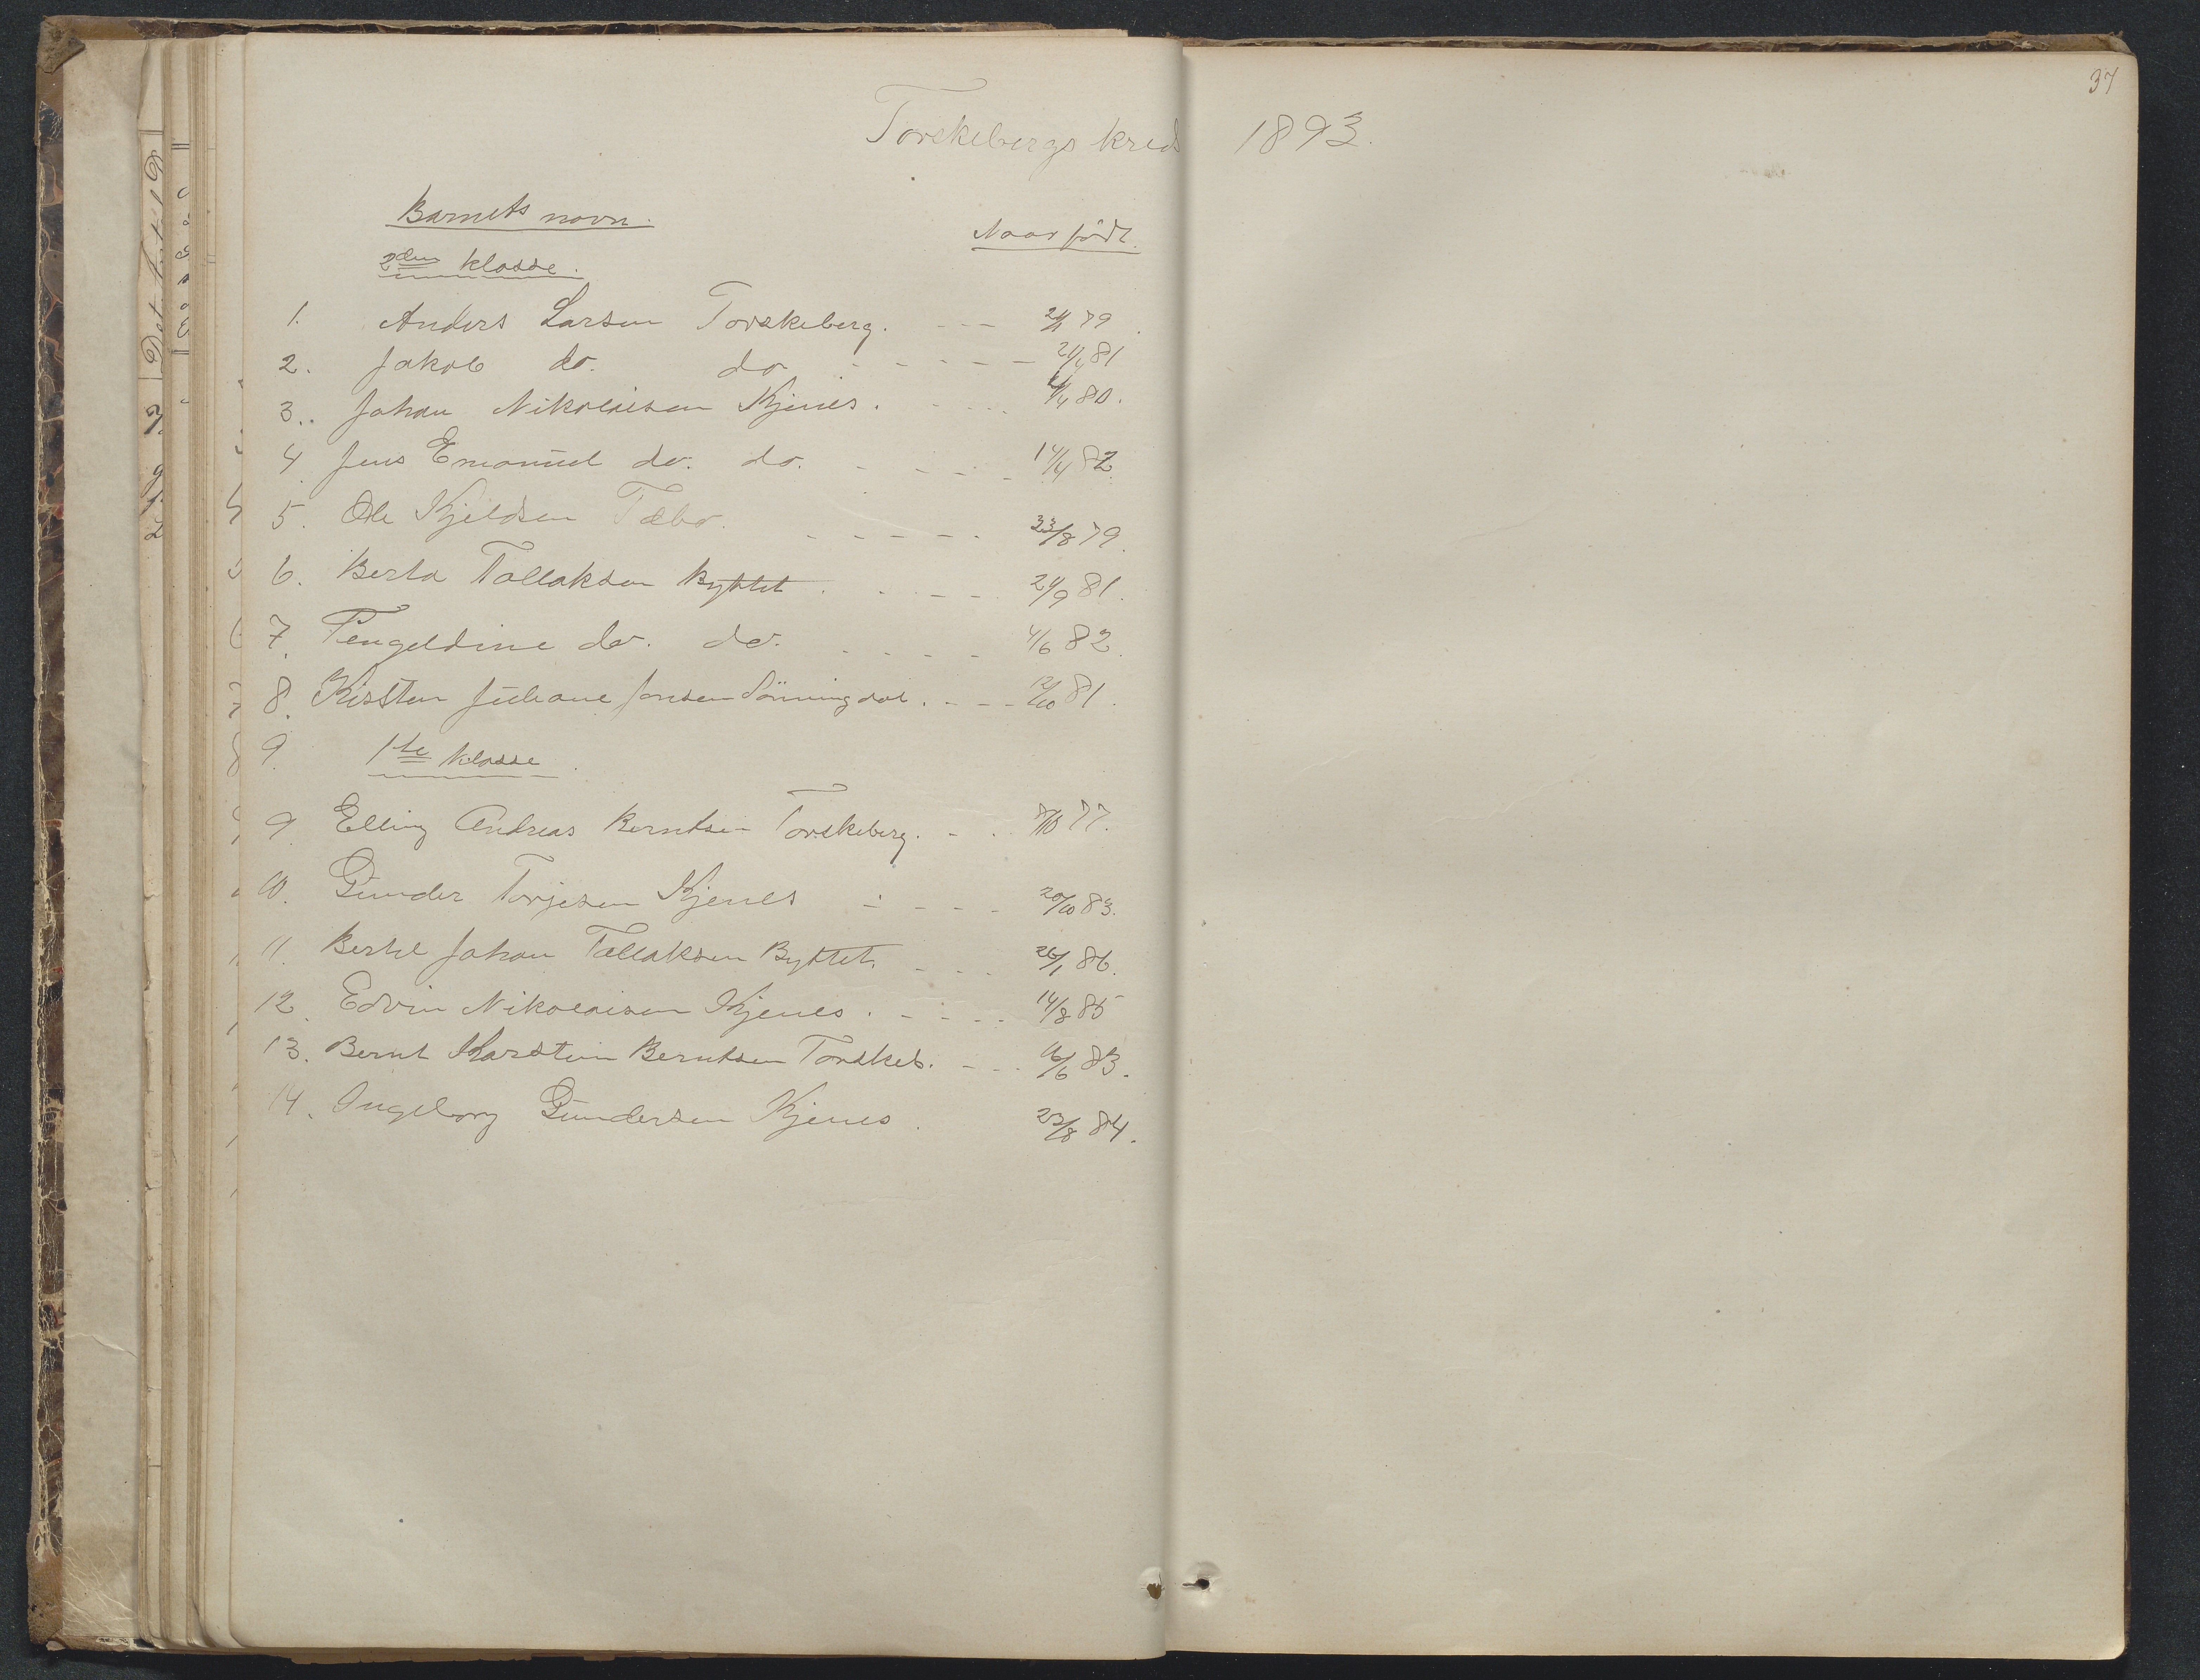 37
Torskebergs kreds 1893.
Barnets navn. Naar født.
2den klasse.
1. Anders Larsen Torskeberg. - - - 79.
2. Jakob do. do - - - - - 21/1 81
3. Johan Nikolaisen Kjenes. - - - - /4 80.
4 Jens Emanuel do. do. - - - - - 14/4 82.
5. Ole Kjeldsen Tæbo. - - - - - 23/8 79.
6. Berta Tallaksen Byttet. - - - - 24/9 81.
7. Tengeldine do. do. - - - - 4/6 82.
8. Kisten Juliane Jensen Lønningdal. - - - 12/10 81.
9. 1ste klasse.
9. Elling Andreas Berntsen Torskeberg. - - /10 77.
10. Gunder Torjesen Kjenes - - - - 20/10 83.
11. Bertil Johan Tallaksen Byttet. - - - 26/1 86.
12. Edvin Nikolaisen Kjenes. - - - - 14/8 85
13. Bernt Karstein Berntsen Torskeb. - - - 16/6 83.
14. Ingeborg Gundersen Kjenes. 23/8 84.